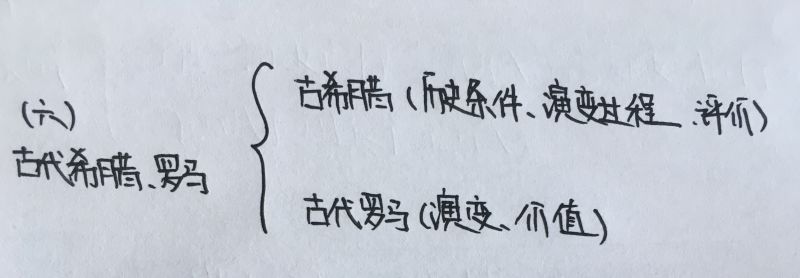 (六)
古代希腊、罗马
古希腊(历史条件、演变过程、评价)
古代罗马(演变、价值)